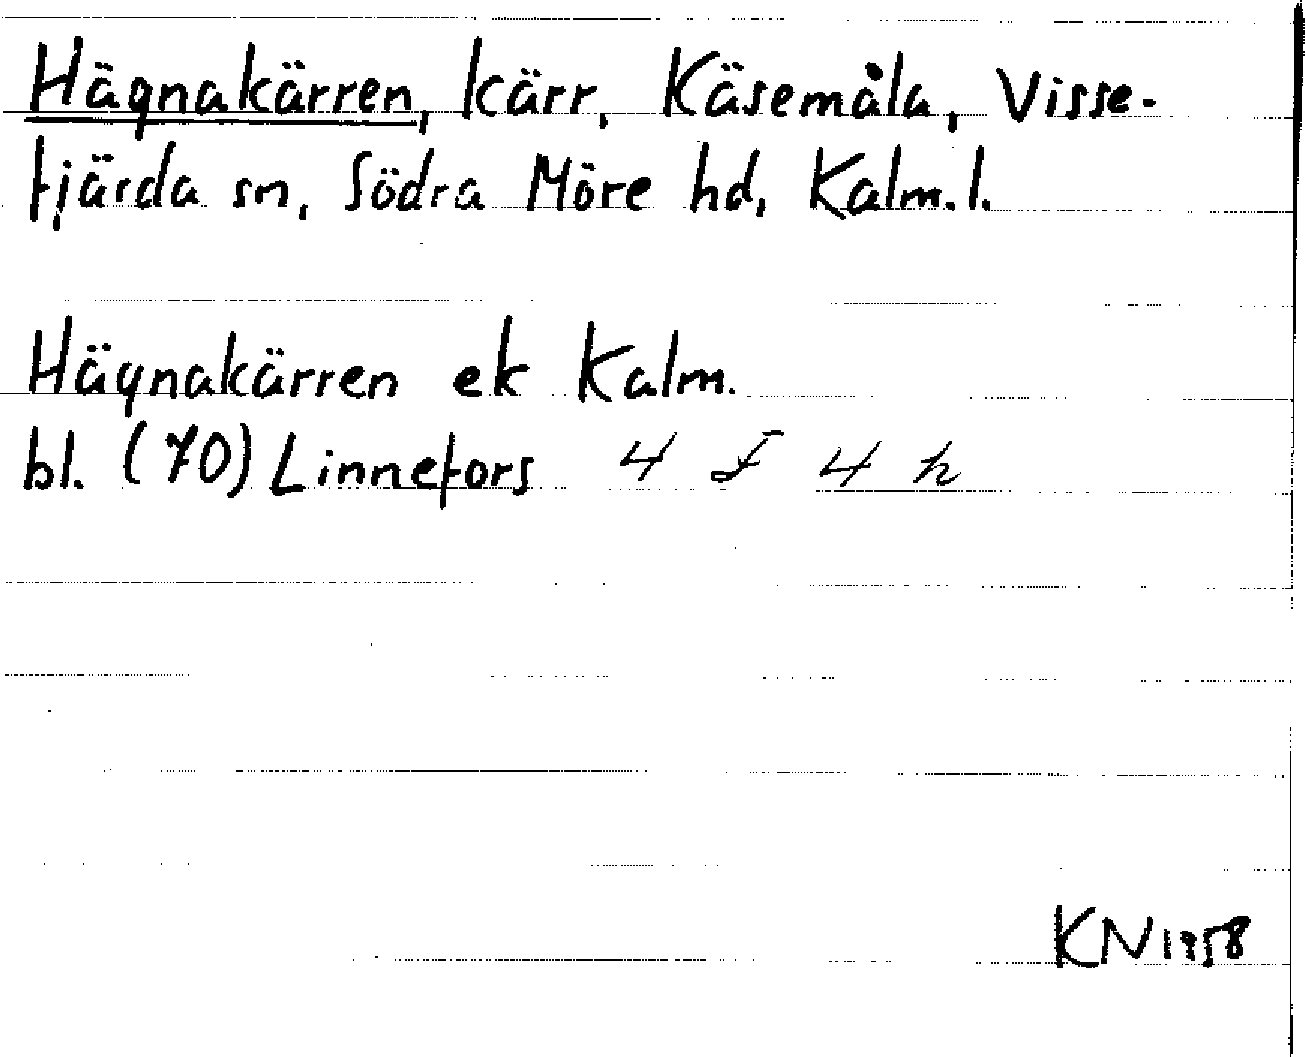 Hägnakärren, kärr, Käsemåla, Visse-
fjärda sn, Södra Möre hd, Kalm. l.
Hägnakärren ek Kalm.
bl. (70) Linnefors 4 F 4 h
KN 1958